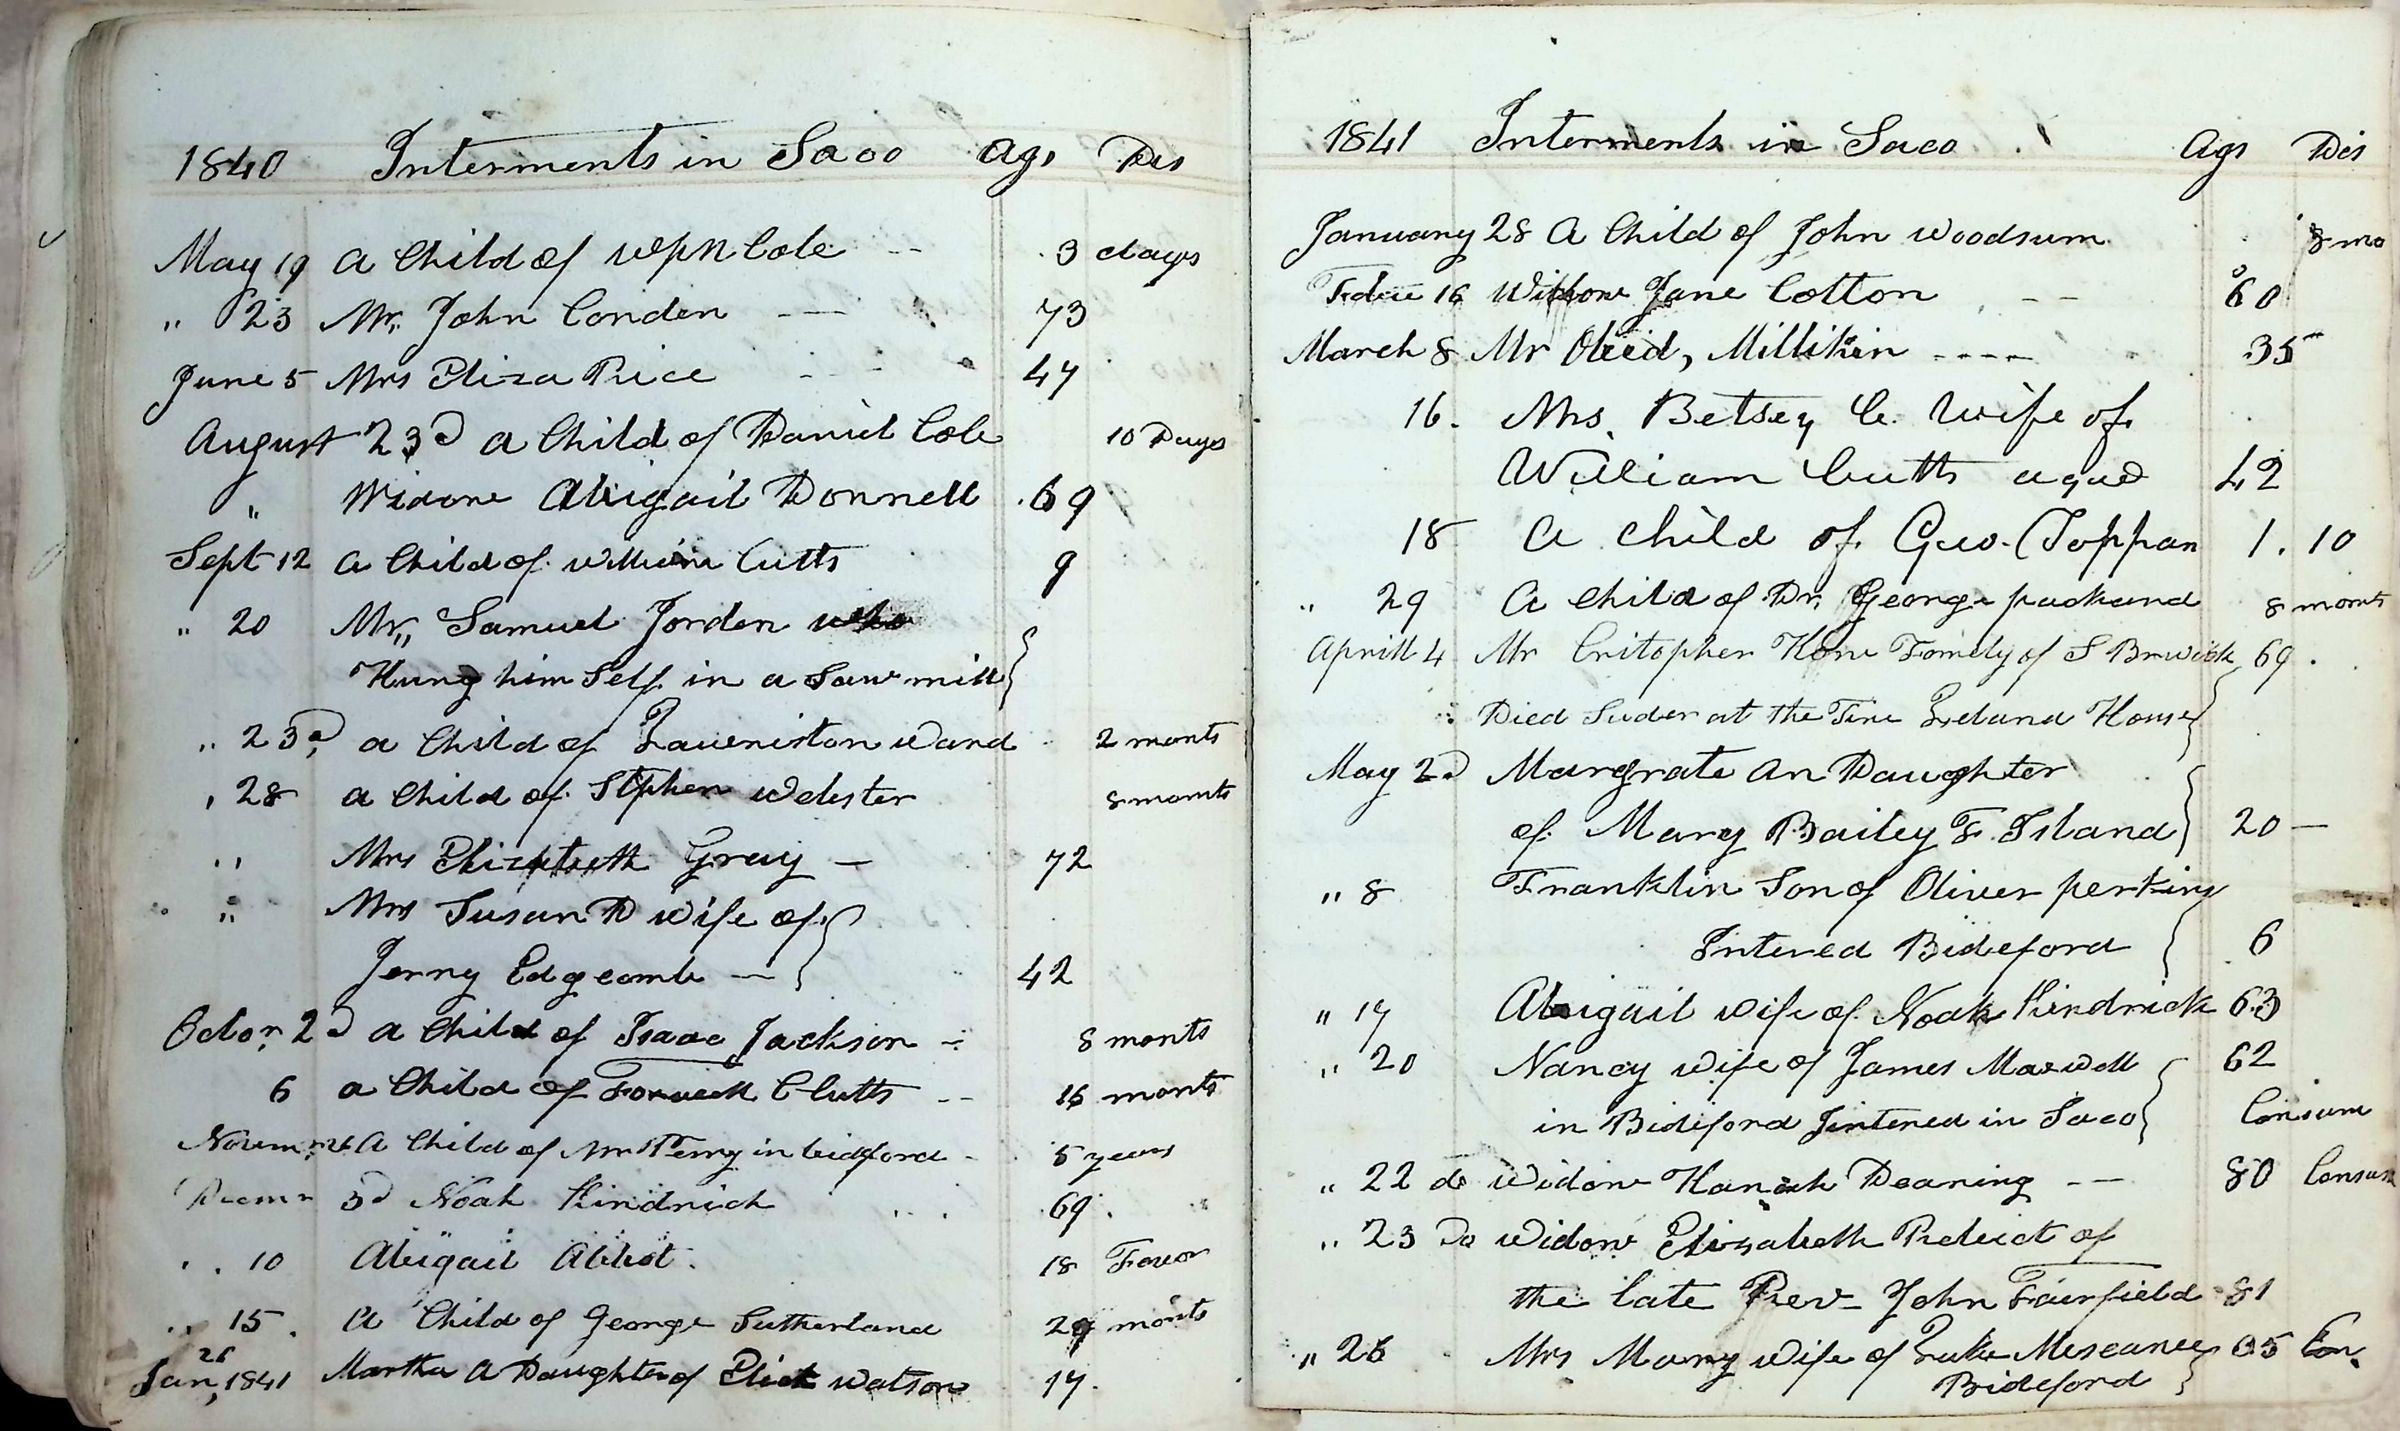 1840 Interments in Saco Age Dis
May 19 a Child of Wm N Cole -- 3 days
" 23 Mr. John Conden --- 73
June 5 Mrs Eliza Rice --- 47
August 23d a Child of Daniel Cole 10 Days
" Widow Abigail Donnell 69
Sept 12 a Child of William Cutts 9
" 20 Mr,, Samuel Jorden who
Hung him Self in a Saw mill
" 23d, a Child of Laueniston Ward 2 monts
" 28 a Child of Stphen Webster 8 monts
" Mrs Elizabeth Gray — 72
" Mrs Susan D wife of
Jerry Edgcomb — 42
Octor, 2d a Child of Isaac Jackson - 8 monts
6 a Child of Cutts -- 16 monts
A Child of Mr Perry in bidford - 5 years
Decmr 3d Noah Kindrick 69
" 10 Abigail Abbot. 18 Fever
" 15. A Child of George Sutherland 29 monts
Jan, 26 1841 Martha A Daughter of Watson 17.
1841 Interments in Saco. Age Dis
January 28 A Child of John Woodsum 8 mo
16 Widow Jane Cotton -- 60
March 8 Mr Obed, Millikin ---- 35
16. Mrs. Betsey C. Wife of
William Cutts aged 42
18 A Child of Geo. Toppan 1. 10
" 29 A Child of Dr, George packard 8 monts
Aprill 4 Mr Critopher Hone Formely of S Brwick 69.
Died Suder at the Ireland House
May 2d Margrate An Daughter
of Mary Bailey F. Island 20 —
" 8 Franklin Son of Oliver perkins
Intered Bideford 6
" 17 Abigail wife of Noah Kindrick 63
" 20 Nancy wife of James Maxwell 62
in Bidiford Jintered in Saco Consum
" 22 do Widow Hanah Dearing -- 80 Consum
" 23 Do Widow Elizabeth Relict of
the late Rev- John Fairfield 81
" 26 Mrs Mary wife of Luke Meseanee 35 Con.
Bideford